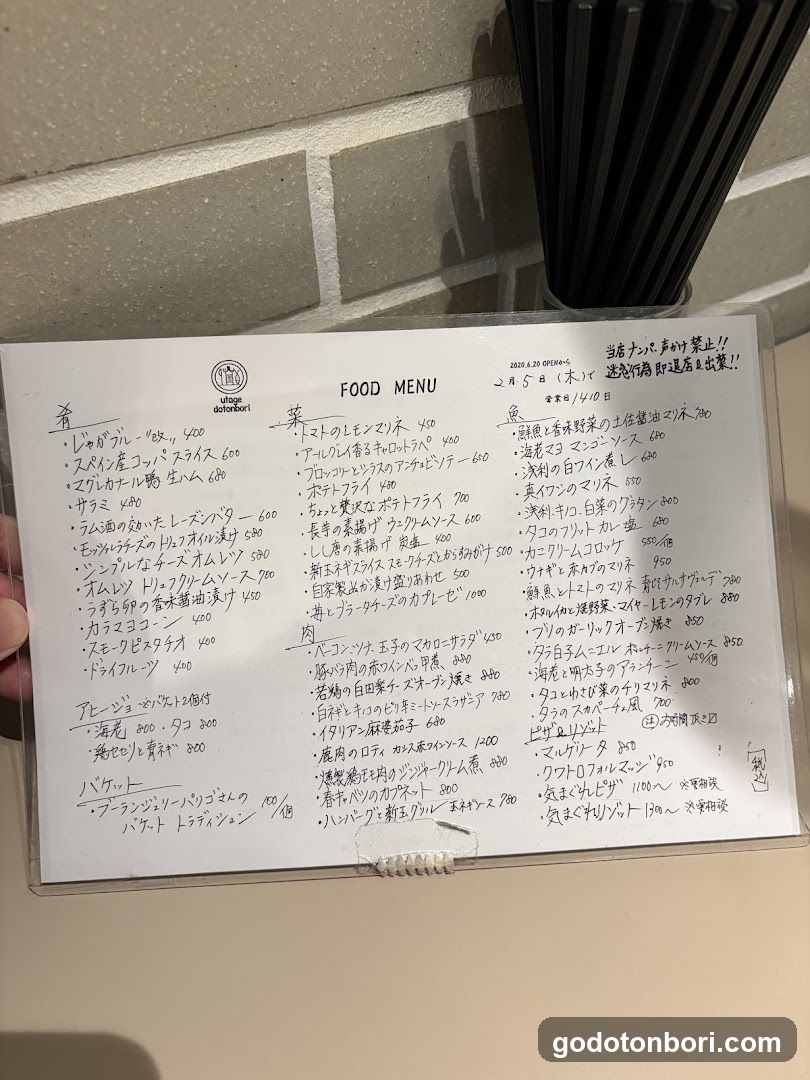 utage
dotonbori
FOOD MENU
2020.6.20 OPENから
2月5日(木)で
営業日1410日
当店ナンパ、声かけ禁止!!
迷惑行為即退店&出禁!!
肴
・じゃがブルー"改" 400
・スペイン産コッパ スライス 600
・マグレカナール鴨 生ハム 680
・サラミ 480
・ラム酒の効いた レーズンバター 600
・モッツァレラチーズのトリュフオイル漬け 580
・シンプルなチーズオムレツ 580
・オムレツ トリュフクリームソース 700
・うずら卵の香味醤油漬け 450
・カラマヨコーン 400
・スモークピスタチオ 400
・ドライフルーツ 400
アヒージョ ※バケット2個付
・海老 800 ・タコ 800
・鶏セセリと青ネギ 800
バケット
・ブーランジュリーパリゴさんの
バケット トラディション 100/個
菜
・トマトのレモンマリネ 450
・アールグレイ香るキャロットラペ 400
・ブロッコリーとシラスのアンチョビソテー 650
・ポテトフライ 480
・ちょっと贅沢なポテトフライ 700
・長芋の素揚げ ウニクリームソース 600
・しし唐の素揚げ 炭塩 400
・新玉ネギスライス スモークチーズとからすみがけ 500
・自家製ぬか漬け盛りあわせ 500
・苺とブラータチーズのカプレーゼ 1000
肉
・ベーコン、ツナ、玉子のマカロニサラダ 450
・豚バラ肉の赤ワインベッ甲煮 880
・若鶏の白田楽チーズオーブン焼き 880
・白ネギとキノコのピリ辛ミートソースラザニア 780
・イタリアン麻婆茄子 680
・鹿肉のロティ カシス赤ワインソース 1200
・燻製鶏モモ肉のジンジャークリーム煮 880
・春キャベツのカプネット 800
・ハンバーグと新玉グリル 玉ネギソース 780
魚
・鮮魚と香味野菜の土佐醤油マリネ 780
・海老マヨ マンゴーソース 680
・浅利の白ワイン蒸し 680
・真イワシのマリネ 550
・浅利、キノコ、白菜のグラタン 800
・タコのフリット カレー塩 680
・カニクリームコロッケ 550/個
・ウナギと赤カブのマリネ 950
・鮮魚とトマトのマリネ 青じそサルサヴェルデ 780
・ホタルイカと焼野菜、マイヤーレモンのタブレ 880
・ブリのガーリックオーブン焼き 850
・タラ白子ムニエル ポルチーニクリームソース 850
・海老と明太子のアランチーニ 450/個
・タコとわさび菜のチリマリネ 800
・タラのスカペーチェ風 700
ピザ&リゾット 注お時間頂きます
・マルゲリータ 850
・クワトロフォルマッジ 950
・気まぐれピザ 1100〜 ※要相談
・気まぐれリゾット 1300〜 ※要相談
税込
godotonbori.com